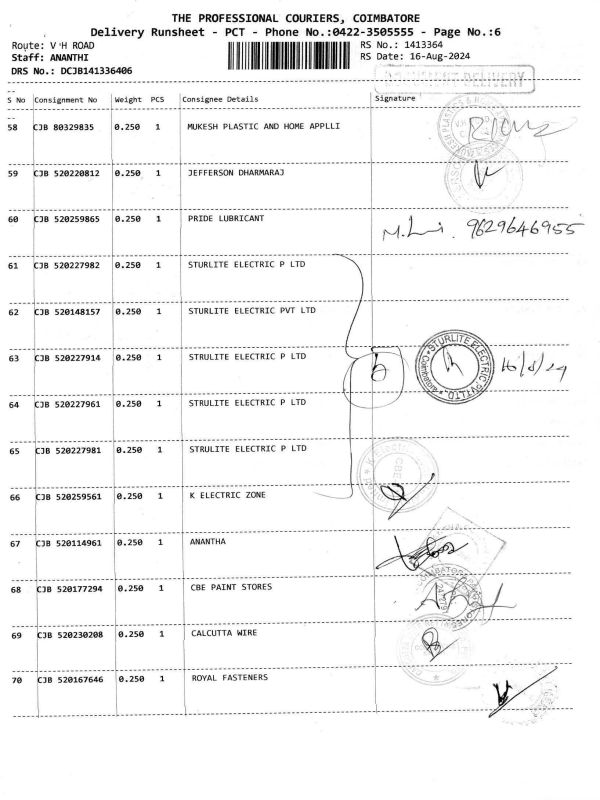 THE PROFESSIONAL COURIERS, COIMBATORE
Delivery Runsheet - PCT - Phone No.:0422-3505555 - Page No.:6
Route: V H ROAD
RS No.: 1413364
Staff: ANANTHI
RS Date: 16-Aug-2024
DRS No.: DCJB141336406
DELIVERY
S No Consignment No Weight PCS Consignee Details Signature
58 CJB 80329835 0.250 1 MUKESH PLASTIC AND HOME APPLLI
59 CJB 520220812 0.250 1 JEFFERSON DHARMARAJ
60 CJB 520259865 0.250 1 PRIDE LUBRICANT 9629646955
61 CJB 520227982 0.250 1 STURLITE ELECTRIC P LTD
62 CJB 520148157 0.250 1 STURLITE ELECTRIC PVT LTD
63 CJB 520227914 0.250 1 STRULITE ELECTRIC P LTD 6 STURLITE ELECTRIC P LTD Coimbatore 16/8/24
64 CJB 520227961 0.250 1 STRULITE ELECTRIC P LTD
65 CJB 520227981 0.250 1 STRULITE ELECTRIC P LTD
66 CJB 520259561 0.250 1 K ELECTRIC ZONE
67 CJB 520114961 0.250 1 ANANTHA
68 CJB 520177294 0.250 1 CBE PAINT STORES
69 CJB 520230208 0.250 1 CALCUTTA WIRE
70 CJB 520167646 0.250 1 ROYAL FASTENERS